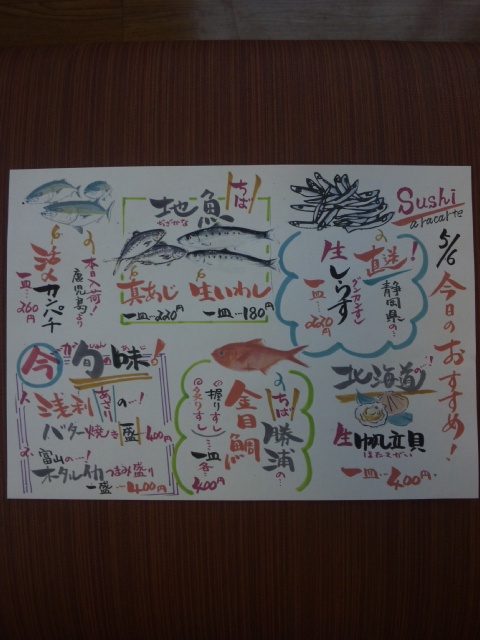 Sushi
a racarte
5/6 今日のおすすめ!
直送!
静岡県の…
生しらす
グンカンずし
一皿…220円
ちば!
地魚
生いわし
一皿…180円
真あじ
一皿…220円
本日入荷!
鹿児島より
カンパチ
一皿…260円
北海道の…!
生帆立貝
ほたてがい
一皿…400円
ちば!
勝浦の…
金目鯛
握りずし
炙りずし
一皿各…400円
今旬味!
浅利の…!
あさり
バター焼き一盛400円
富山の…!
ホタルイカつまみ盛り
一盛…400円